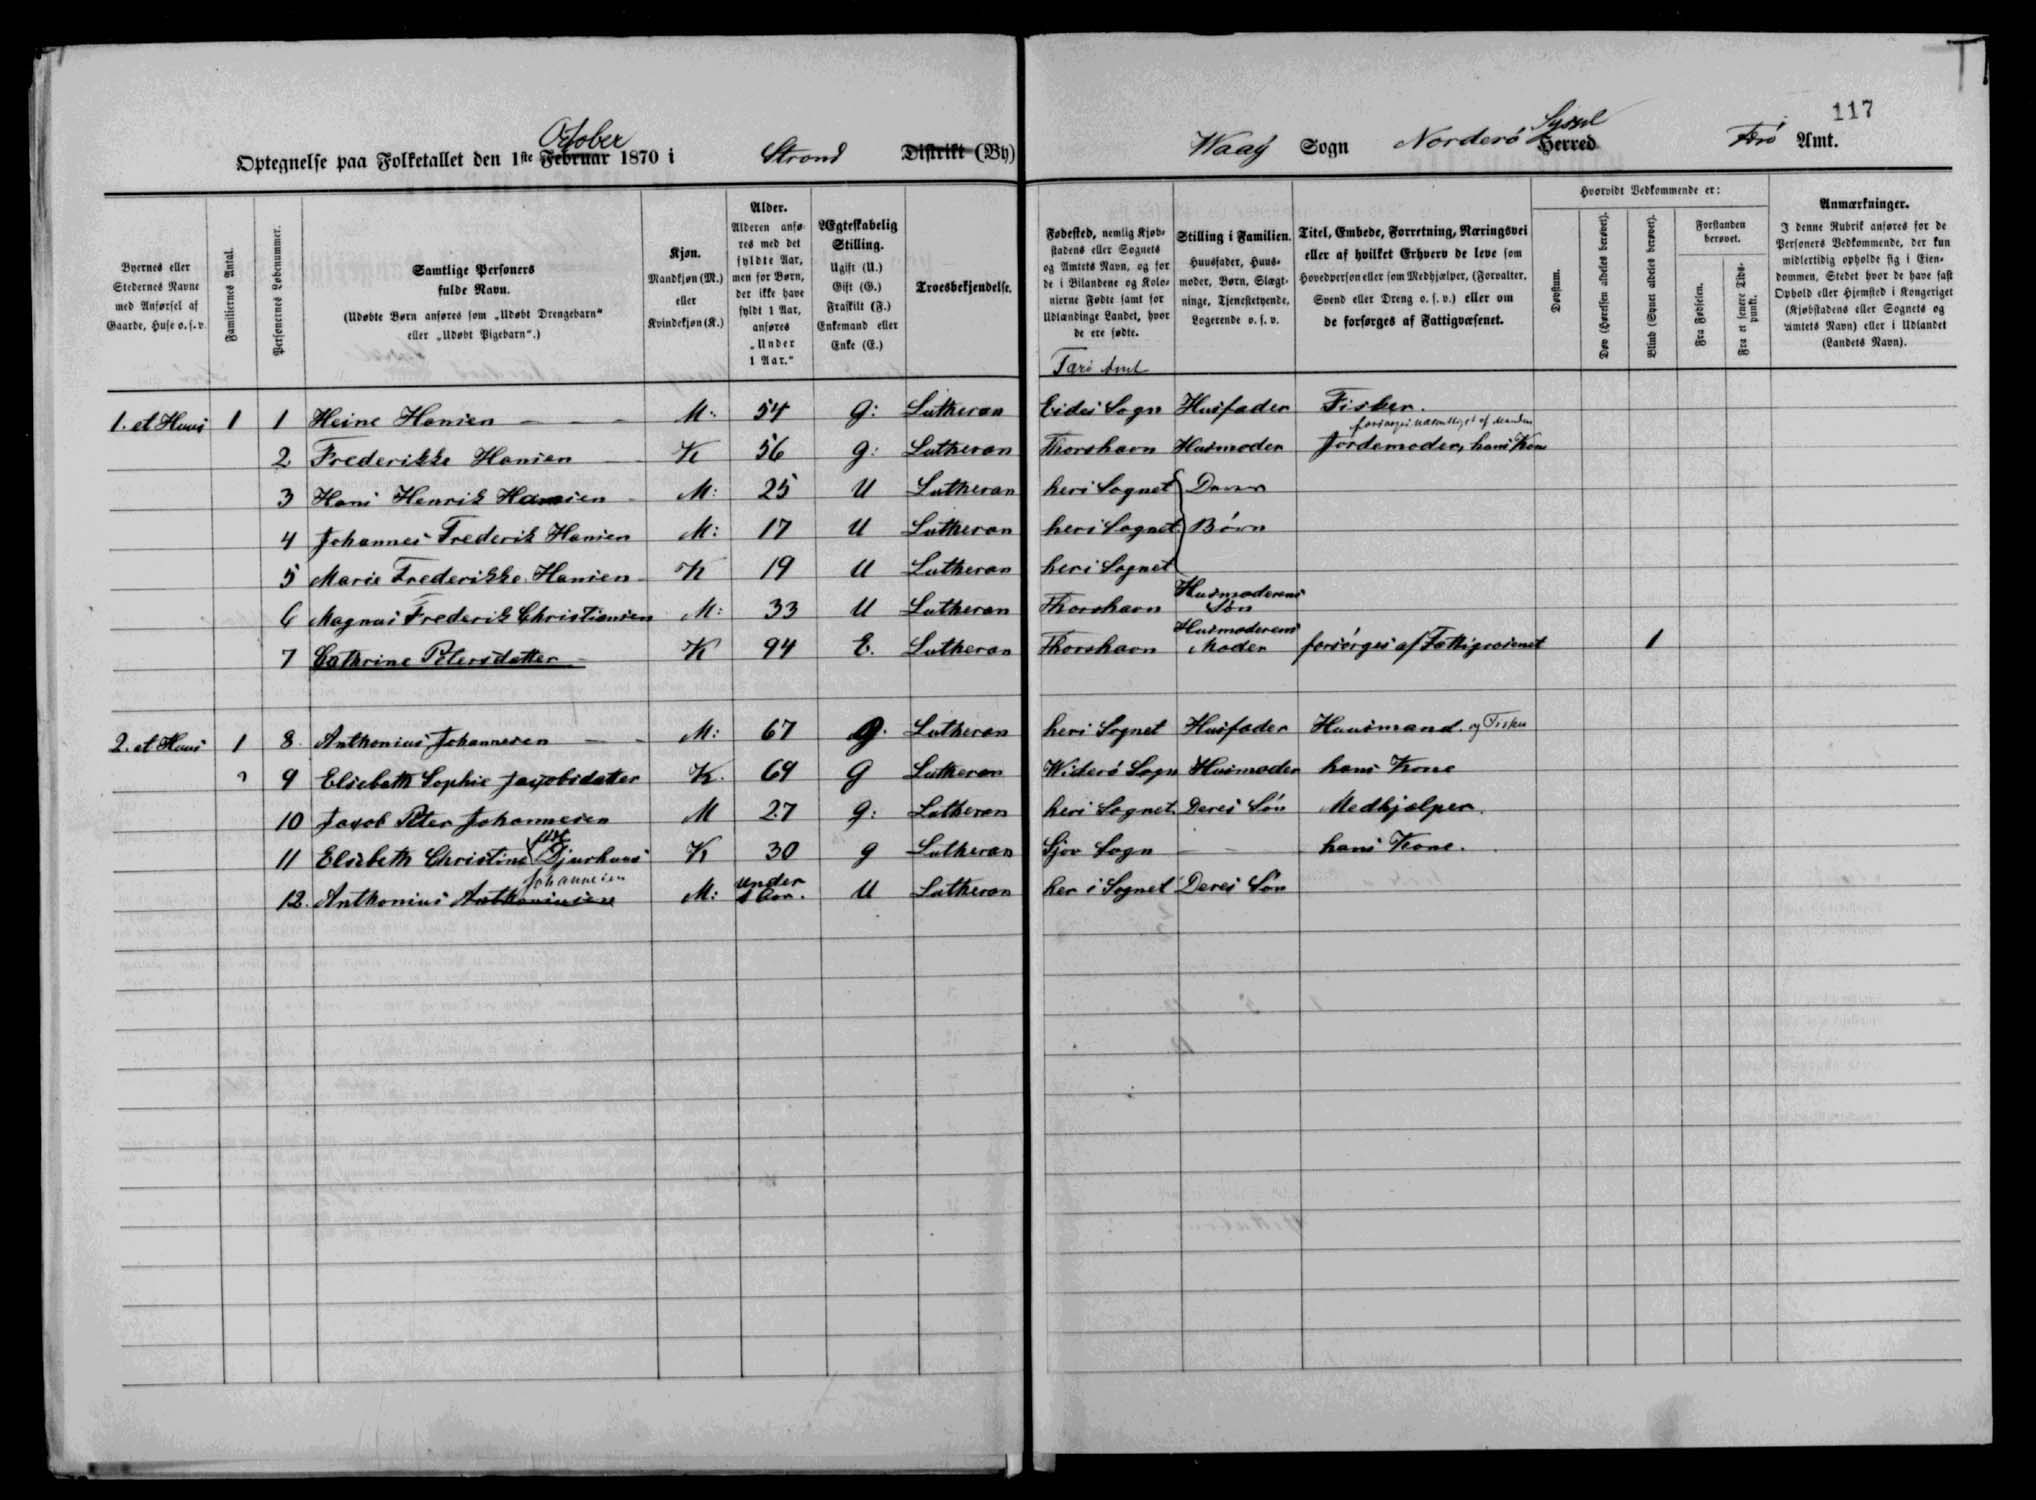 117
Optegnelse paa Folketallet den 1ste Februar October 1870 i Strond Distrikt (By) Waay Sogn Norderö Herred Syssel Færö Amt.
Byernes eller Stedernes Navne med Anførsel af Gaarde, Huse o. s. v.
Familiernes Antal.
Personernes Løbenummer.
Samtlige Personers fulde Navn.
(Udøbte Børn anføres som „Udøbt Drengebarn“ eller „Udøbt Pigebarn“.)
Kjøn.
Mandkjøn (M.) eller Kvindekjøn (K.)
Alder.
Alderen anføres med det fyldte Aar, men for Børn, der ikke have fyldt 1 Aar, anføres „Under 1 Aar.“
Ægteskabelig Stilling.
Ugift (U.)
Gift (G.)
Fraskilt (F.)
Enkemand eller Enke (E.)
Troesbekjendelse.
Fødested, nemlig Kjøbstadens eller Sognets og Amtets Navn, og for de i Bilandene og Kolonierne Fødte samt for Udlændinge Landet, hvor de ere fødte.
Stilling i Familien.
Huusfader, Huusmoder, Børn, Slægtninge, Tjenestetyende, Logerende o. s. v.
Titel, Embede, Forretning, Næringsvei eller af hvilket Erhverv de leve som Hovedperson eller som Medhjælper, (Forvalter, Svend eller Dreng o. s. v.) eller om de forsørges af Fattigvæsenet.
Hvorvidt Vedkommende er:
Døvstum.
Døv (Hørelsen aldeles berøvet).
Blind (Synet aldeles berøvet).
Forstanden berøvet.
Fra Fødselen.
Fra et senere Tidspunkt.
Anmærkninger.
I denne Rubrik anføres for de Personers Vedkommende, der kun midlertidig opholde sig i Eiendommen, Stedet hvor de have fast Ophold eller Hjemsted i Kongeriget (Kjøbstadens eller Sognets og Amtets Navn) eller i Udlandet (Landets Navn).
Færö Amt
1. et Huus 1 1 Heine Hansen M: 54 g: Lutheran Eides Sogn Husfader Fisker.
2 Frederikke Hansen K 56 g: Lutheran Thorshavn Husmoder Jordemoder, hans Kone
3 Hans Henrik Hansen M: 25 U Lutheran heri Sognet Deres
4 Johannes Frederik Hansen M: 17 U Lutheran heri Sognet Börn
5 Marie Frederikke Hansen K 19 U Lutheran heri Sognet
6 Magnus Frederik Christiansen M: 33 U Lutheran Thorshavn Husmoderens Sön
7 Cathrine Petersdatter K 94 E. Lutheran Thorshavn Husmoderens Moder forsörges af Fattigvæsenet 1
2. et Huus 1 8. Anthonius Johannesen M: 67 g. Lutheran heri Sognet Husfader Huusmand. og Fisker
9 Elsebeth Sophie Jacobsdatter K. 69 g Lutheran Widerö Sogn Husmoder hans Kone
10 Jacob Peter Johannesen M 27 g: Lutheran heri Sognet Deres Sön Medhjælper
11 Elsebeth Christine Djurhuus K 30 g Lutheran Sjov Sogn hans Kone.
12. Anthonius Anthoniusen Johannesen M: under 1 Aar. U Lutheran her i Sognet Deres Sön